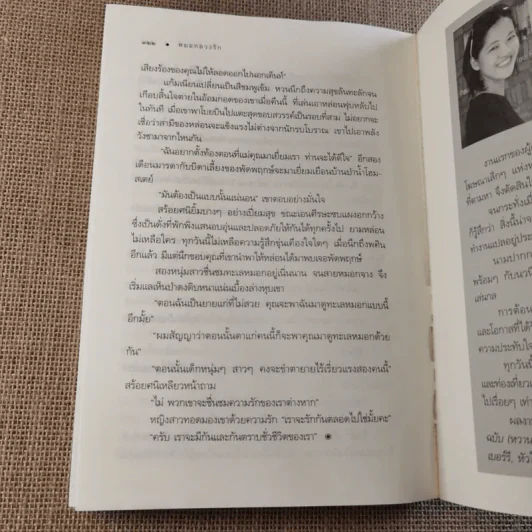 ๓๒๒ • หมอกลวงรัก
เสียงร้องของคุณไม่ให้ลอดออกไปนอกเต็นท์"
แก้มเนียนเปลี่ยนเป็นสีชมพูเข้ม หวนนึกถึงความสุขล้นทะลักจน
เกือบสิ้นใจตายในอ้อมกอดของเขาเมื่อคืนนี้ ที่เล่นเอาหล่อนฟุบหลับไป
ในทันที เมื่อเขาพาโบยบินไปแตะสุดขอบสวรรค์เป็นรอบที่สาม ไม่อยากจะ
เชื่อว่าสามีของหล่อนจะแข็งแรงไม่ต่างจากนักรบโบราณ เขาไปเอาพลัง
วังชามาจากไหนกัน
"ฉันอยากตั้งท้องตอนที่แม่คุณมาเยี่ยมเรา ท่านจะได้ดีใจ" อีกสอง
เดือนมารดากับบิดาเลี้ยงของพัดพฤกษ์จะมาเยี่ยมเยือนบ้านป่าน้ำโฮม-
สเตย์
"มันต้องเป็นแบบนั้นแน่นอน" เขาตอบอย่างมั่นใจ
สร้อยศนิยิ้มบางๆ อย่างเปี่ยมสุข ขณะเอนศีรษะซบแผงอกกว้าง
ซึ่งเป็นดั่งที่พักพิงแสนอบอุ่นและปลอดภัยให้กันได้ทุกครั้งไป ยามหล่อน
ไม่เหลือใคร ทุกวันนี้ไม่เหลือความรู้สึกขุ่นเคืองใจใดๆ เมื่อนึกถึงพศิน
อีกแล้ว มีแต่นึกขอบคุณที่เขานำพาให้หล่อนได้มาพบเจอพัดพฤกษ์
สองหนุ่มสาวชื่นชมทะเลหมอกอยู่เนิ่นนาน จนสายหมอกจาง จึง
เริ่มแลเห็นป่าดงดิบหนาแน่นเบื้องล่างหุบเขา
"ตอนฉันเป็นยายแก่ที่ไม่สวย คุณจะพาฉันมาดูทะเลหมอกแบบนี้
อีกมั้ย"
"ผมสัญญาว่าตอนนั้นตาแก่คนนี้ก็จะพาคุณมาดูทะเลหมอกด้วย
กัน"
"ตอนนั้นเด็กหนุ่มๆ สาวๆ คงจะขำตายายไร้เรี่ยวแรงสองคนนี้"
สร้อยศนิเหลียวหน้าถาม
"ไม่ พวกเขาจะชื่นชมความรักของเราต่างหาก"
หญิงสาวทอดมองเขาด้วยความรัก "เราจะรักกันตลอดไปใช่มั้ยคะ"
"ครับ เราจะมีกันและกันตราบชั่วชีวิตของเรา"
งานแรกของผู้
โฆษณาเล็กๆ แห่งห
ที่ตามหา จึงตัดสินใ
จนกระทั่งเมื่
ก็รู้สึกว่า สิ่งนี้น่าจ
ทำงานแปลอยู่ประ
นามปากก
พร้อมๆ กับนวนิ
เล่นกล
การต้อน
และโอกาสที่ได้
ความประทับใจ
ทุกวันนี้
และท่องเที่ยว
ไปเรื่อยๆ เท่า
ผลงาน
ฉบับ (หวาน
เบอร์รี, หัวใ